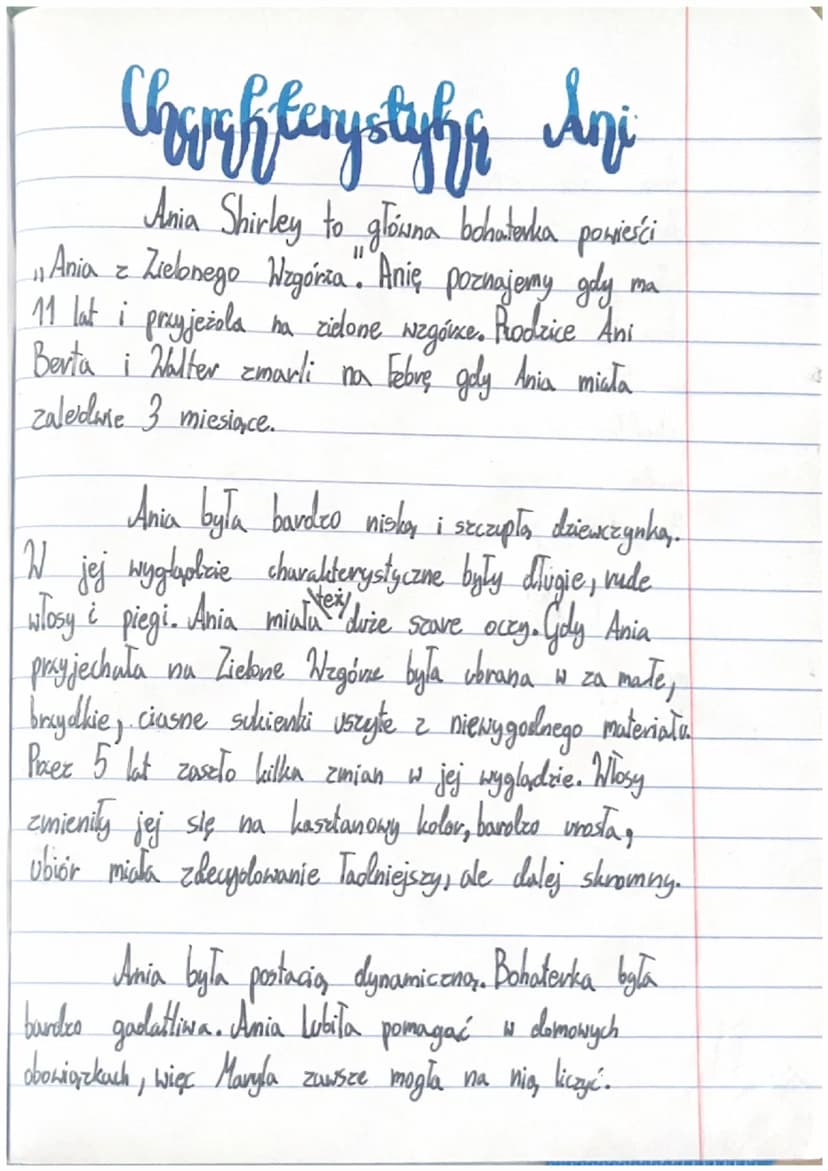 Charakterystyka Ani
Ania Shirley to główna bohaterka powieści
„Ania z Zielonego Wzgórza". Anię poznajemy gdy ma
11 lat i przyjeżda na zielone wzgórze. Rodzice Ani
Berta i Walter zmarli na Febrę gdy Ania miała
zaledwie 3 miesiące.
Ania była bardzo niską i szczupłą dziewczynką.
W jej wyglądzie charakterystyczne były długie, rude
włosy i piegi. Ania miała też duże szare oczy. Gdy Ania
przyjechała na Zielone Wzgórze była ubrana w za małe,
brzydkie, ciasne sukienki uszyte z niewygodnego materiału.
Przez 5 lat zaszło kilka zmian w jej wyglądzie. Włosy
zmieniły jej się na kasztanowy kolor, bardzo urosła,
ubiór miała zdecydowanie ładniejszy, ale dalej skromny.
Ania była postacią dynamiczną. Bohaterka była
bardzo gadatliwa. Ania Lubiła pomagać w domowych
obowiązkach, więc Maryla zawsze mogła na nią liczyć.